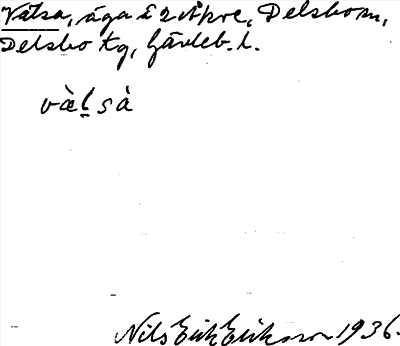 Valsa, äga i 2 Åkre, Delsbom,
Delsbo tg, Gävleb. l.
vàl̠sà
Nils Erik Eriksson 1936.